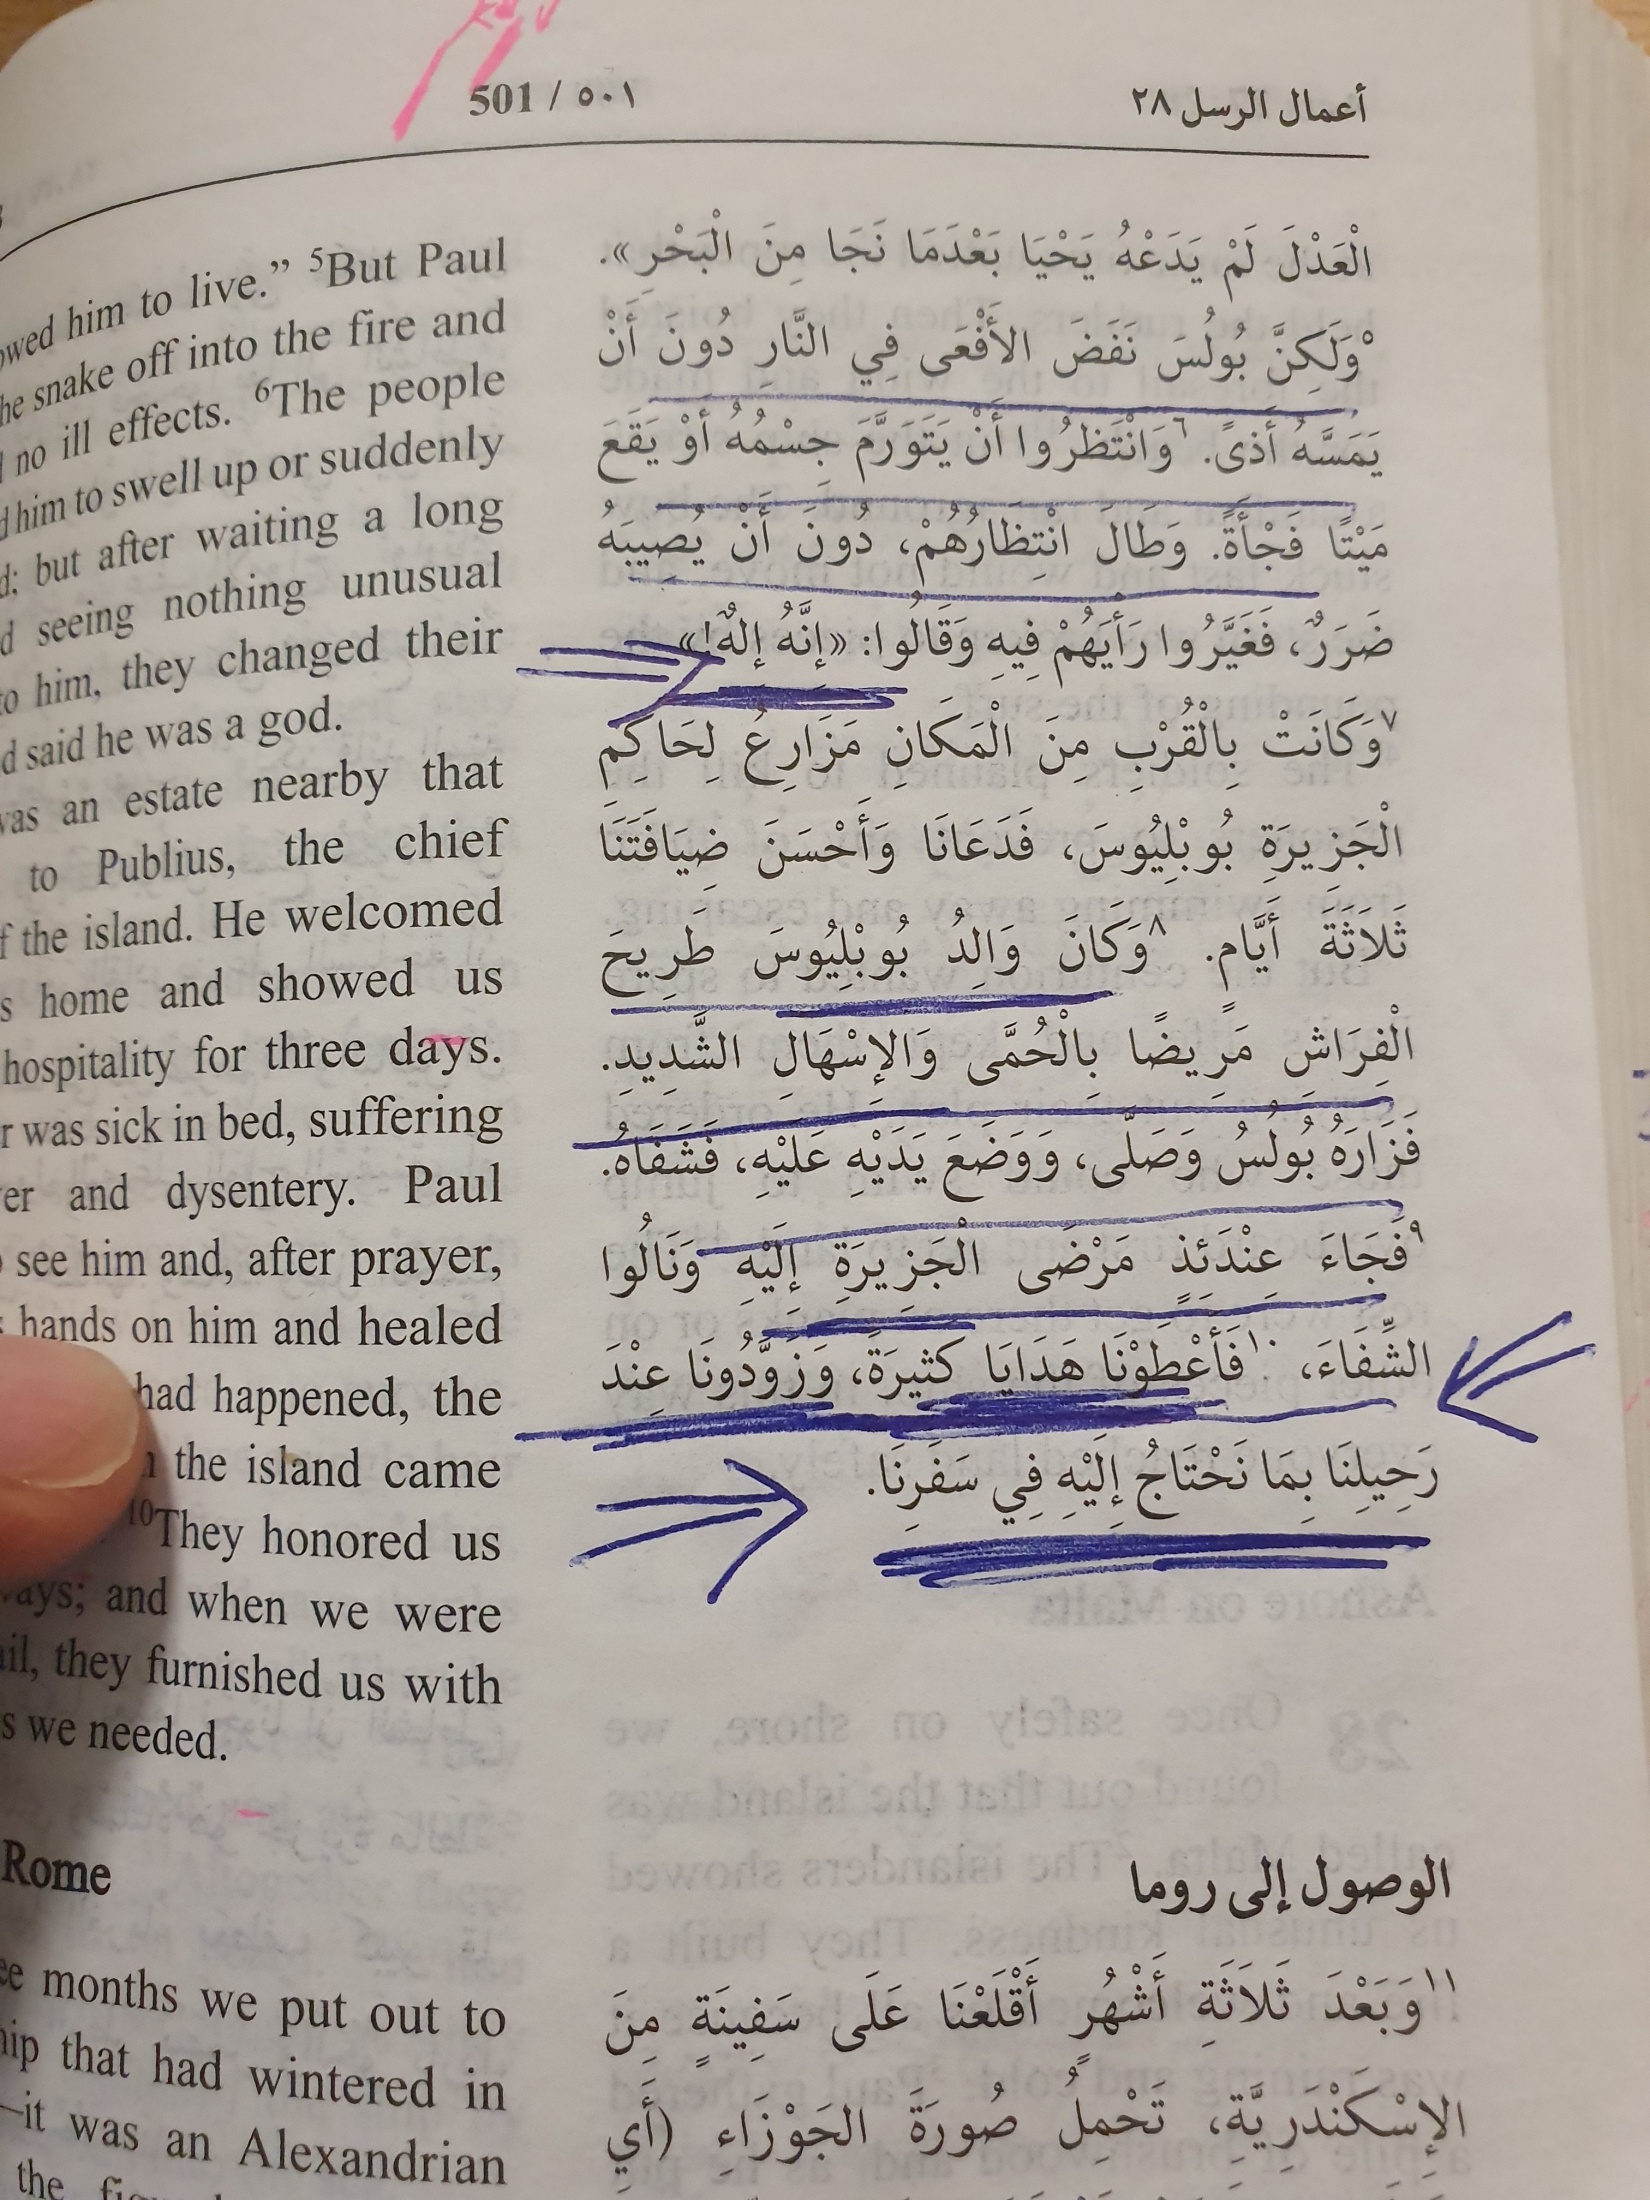 501 / ٥٠١
أعمال الرسل ٢٨
him to live.” ⁵But Paul
snake off into the fire and
no ill effects. ⁶The people
him to swell up or suddenly
but after waiting a long
seeing nothing unusual
him, they changed their
said he was a god.
an estate nearby that
to Publius, the chief
the island. He welcomed
home and showed us
hospitality for three days.
was sick in bed, suffering
and dysentery. Paul
see him and, after prayer,
hands on him and healed
had happened, the
the island came
¹⁰They honored us
and when we were
they furnished us with
we needed.
Rome
months we put out to
that had wintered in
—it was an Alexandrian
the
الْعَدْلَ لَمْ يَدَعْهُ يَحْيَا بَعْدَمَا نَجَا مِنَ الْبَحْرِ».
°وَلَكِنَّ بُولُسَ نَفَضَ الأَفْعَى فِي النَّارِ دُونَ أَنْ
يَمَسَّهُ أَذىً. ٦وَانْتَظَرُوا أَنْ يَتَوَرَّمَ جِسْمُهُ أَوْ يَقَعَ
مَيْتًا فَجْأَةً. وَطَالَ انْتِظَارُهُمْ، دُونَ أَنْ يُصِيبَهُ
ضَرَرٌ، فَغَيَّرُوا رَأْيَهُمْ فِيهِ وَقَالُوا: «إِنَّهُ إِلهٌ!»
٧وَكَانَتْ بِالْقُرْبِ مِنَ الْمَكَانِ مَزَارِعُ لِحَاكِمِ
الْجَزِيرَةِ بُوبْلِيُوسَ، فَدَعَانَا وَأَحْسَنَ ضِيَافَتَنَا
ثَلاَثَةَ أَيَّامٍ. ٨وَكَانَ وَالِدُ بُوبْلِيُوسَ طَرِيحَ
الْفِرَاشِ مَرِيضًا بِالْحُمَّى وَالإِسْهَالِ الشَّدِيدِ.
فَزَارَهُ بُولُسُ وَصَلَّى، وَوَضَعَ يَدَيْهِ عَلَيْهِ، فَشَفَاهُ.
٩فَجَاءَ عِنْدَئِذٍ مَرْضَى الْجَزِيرَةِ إِلَيْهِ وَنَالُوا
الشِّفَاءَ، ١٠فَأَعْطَوْنَا هَدَايَا كَثِيرَةً، وَزَوَّدُونَا عِنْدَ
رَحِيلِنَا بِمَا نَحْتَاجُ إِلَيْهِ فِي سَفَرِنَا.
الوصول إلى روما
١١وَبَعْدَ ثَلاَثَةِ أَشْهُرٍ أَقْلَعْنَا عَلَى سَفِينَةٍ مِنَ
الإِسْكَنْدَرِيَّةِ، تَحْمِلُ صُورَةَ الجَوْزَاءِ (أَيِ